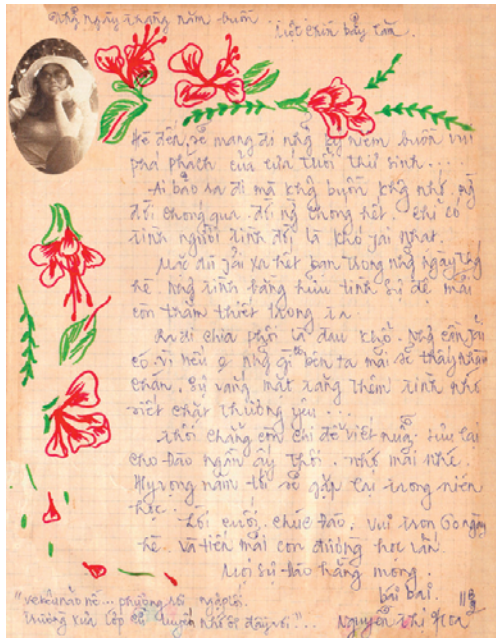 Những ngày tháng năm buồn. Một chín bảy tám.
Hè đến, sẽ mang đi những kỷ niệm buồn vui
phá phách của lứa tuổi thư sinh ....
Ai bảo ra đi mà không buồn không nhớ.
đời chóng qua. đời chóng hết. chỉ có
tình người tình đời là khó phai nhạt.
Mặc dù phải xa hết bạn trong những ngày
hè. Những tình bằng hữu tình sư đệ mãi
còn thắm thiết trong ta.
Ra đi chia phôi là đau khổ. Nhưng cần phải
có vì nếu những gì bên ta mãi sẽ thấy nhàm
chán. Sự vắng mặt tăng thêm tình nhớ
siết chặt thương yêu ...
Thôi chẳng còn chi để viết nữa. Lưu lại
cho Đào ngần ấy thôi. nhớ mãi nhé.
Hy vọng năm tới sẽ gặp lại trong niên
học.
Lời cuối, chúc Đào, vui trọn 60 ngày
hè. Và tiến mãi con đường học vấn.
Mọi sự Đào hằng mong.
bái bai.
"ve kêu não nề ... phượng rơi ngập lối.
trường xưa lớp cũ luyến nhớ đầy vơi." Nguyễn Thị Hoa